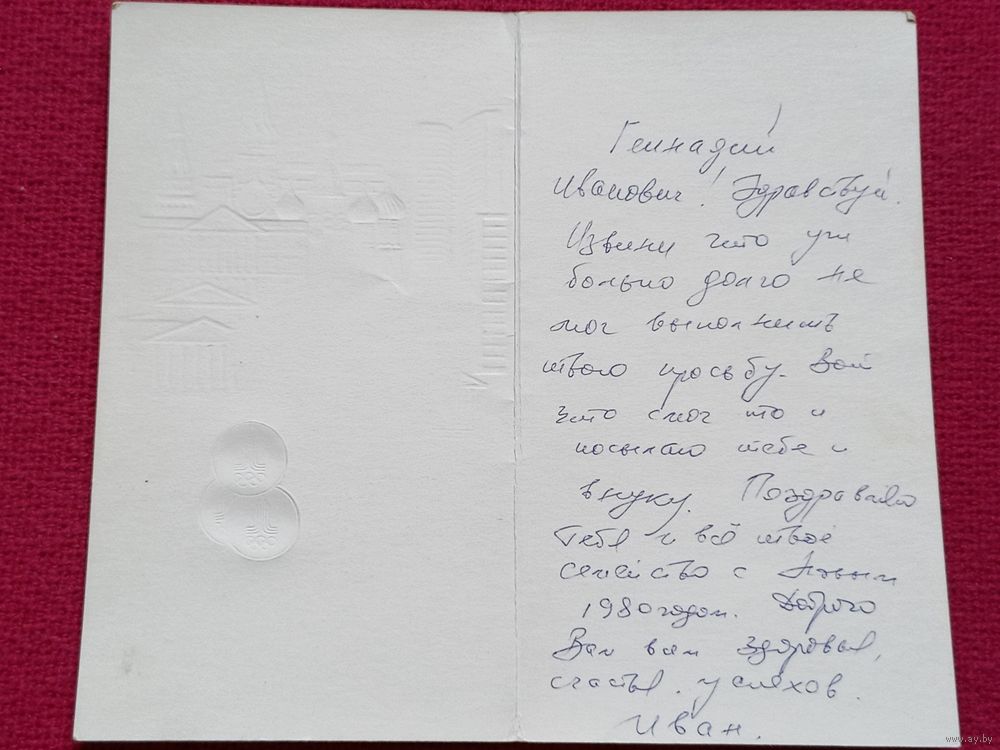 Геннадий
Иванович! Здравствуй.
Извини что уж
больно долго не
мог выполнить
твою просьбу. Вот
что смог то и
посылаю тебе и
внуку. Поздравляю
тебя и всё твоё
семейство с Новым
1980 годом. Доброго
Вам всем здоровья,
счастья, успехов.
Иван.
www.ay.by